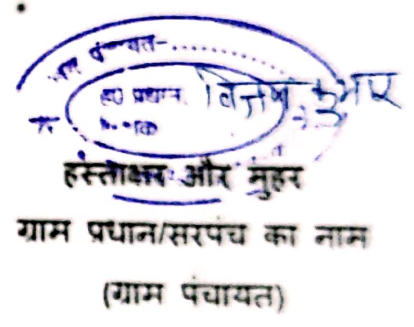 ग्राम पंचायत-
ह0 प्रधान विजय कुमार
हस्ताक्षर और मुहर
ग्राम प्रधान/सरपंच का नाम
(ग्राम पंचायत)